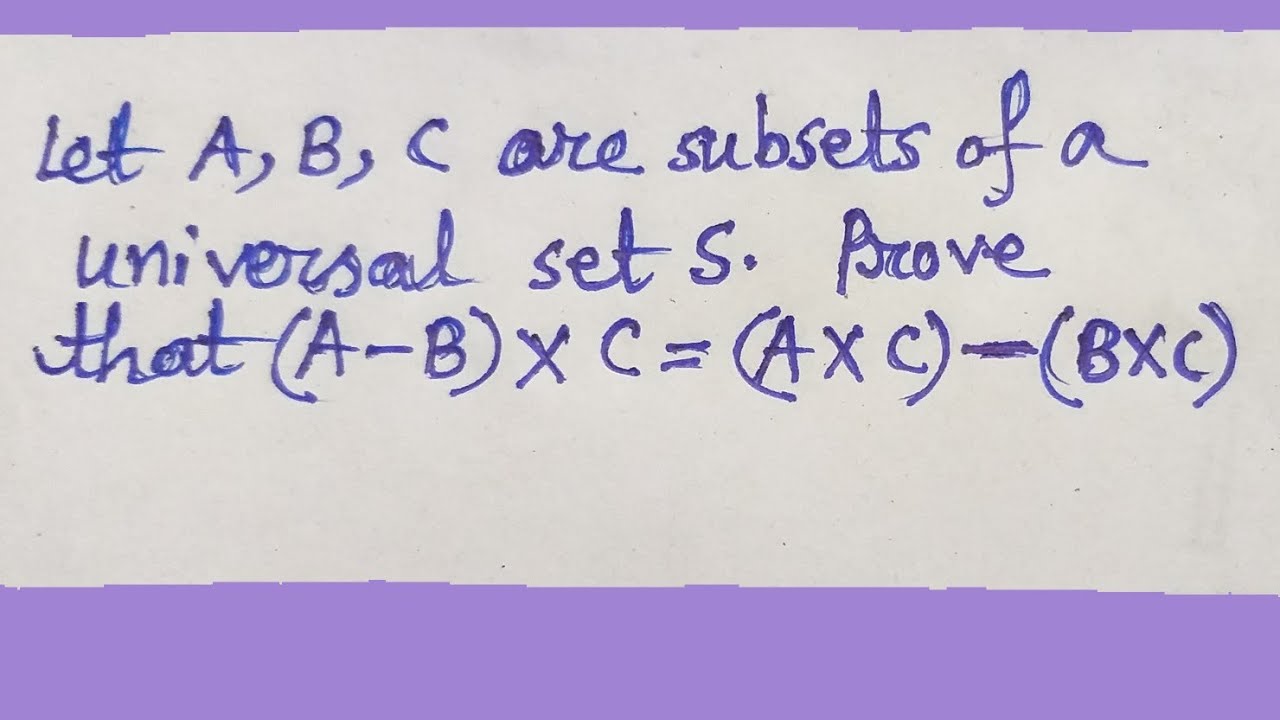 Let A, B, C are subsets of a
universal set S. Prove
that (A-B) X C = (A X C) - (B X C)